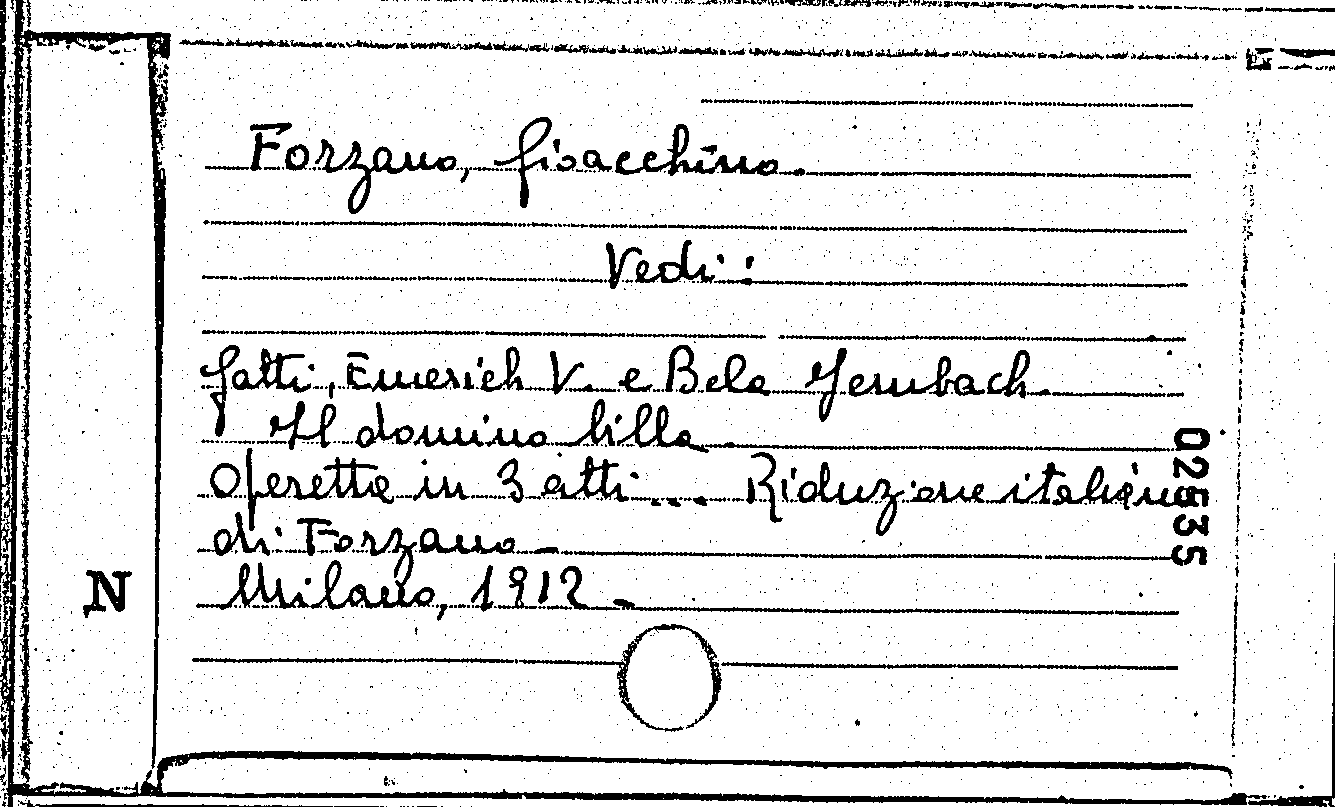 Forzano, Gioacchino.
Vedi:
Gatti, Emerich V. e Bela Jembach.
Il domino lilla.
Operetta in 3 atti... Riduzione italiana
di Forzano -
Milano, 1912 -
N
02535